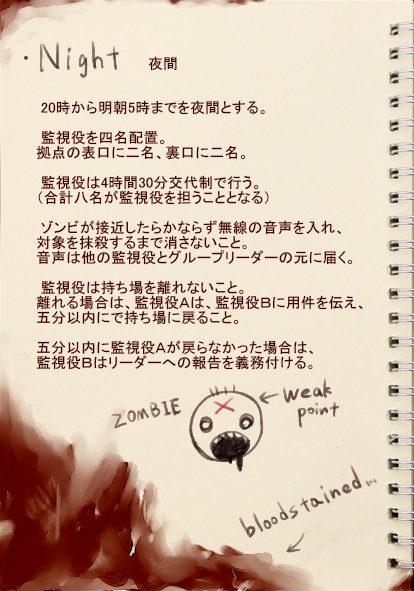 ・Night 夜間
20時から明朝5時までを夜間とする。
監視役を四名配置。
拠点の表口に二名、裏口に二名。
監視役は4時間30分交代制で行う。
(合計八名が監視役を担うこととなる)
ゾンビが接近したらかならず無線の音声を入れ、
対象を抹殺するまで消さないこと。
音声は他の監視役とグループリーダーの元に届く。
監視役は持ち場を離れないこと。
離れる場合は、監視役Aは、監視役Bに用件を伝え、
五分以内にで持ち場に戻ること。
五分以内に監視役Aが戻らなかった場合は、
監視役Bはリーダーへの報告を義務付ける。
ZOMBIE
← weak
point
bloodstained...